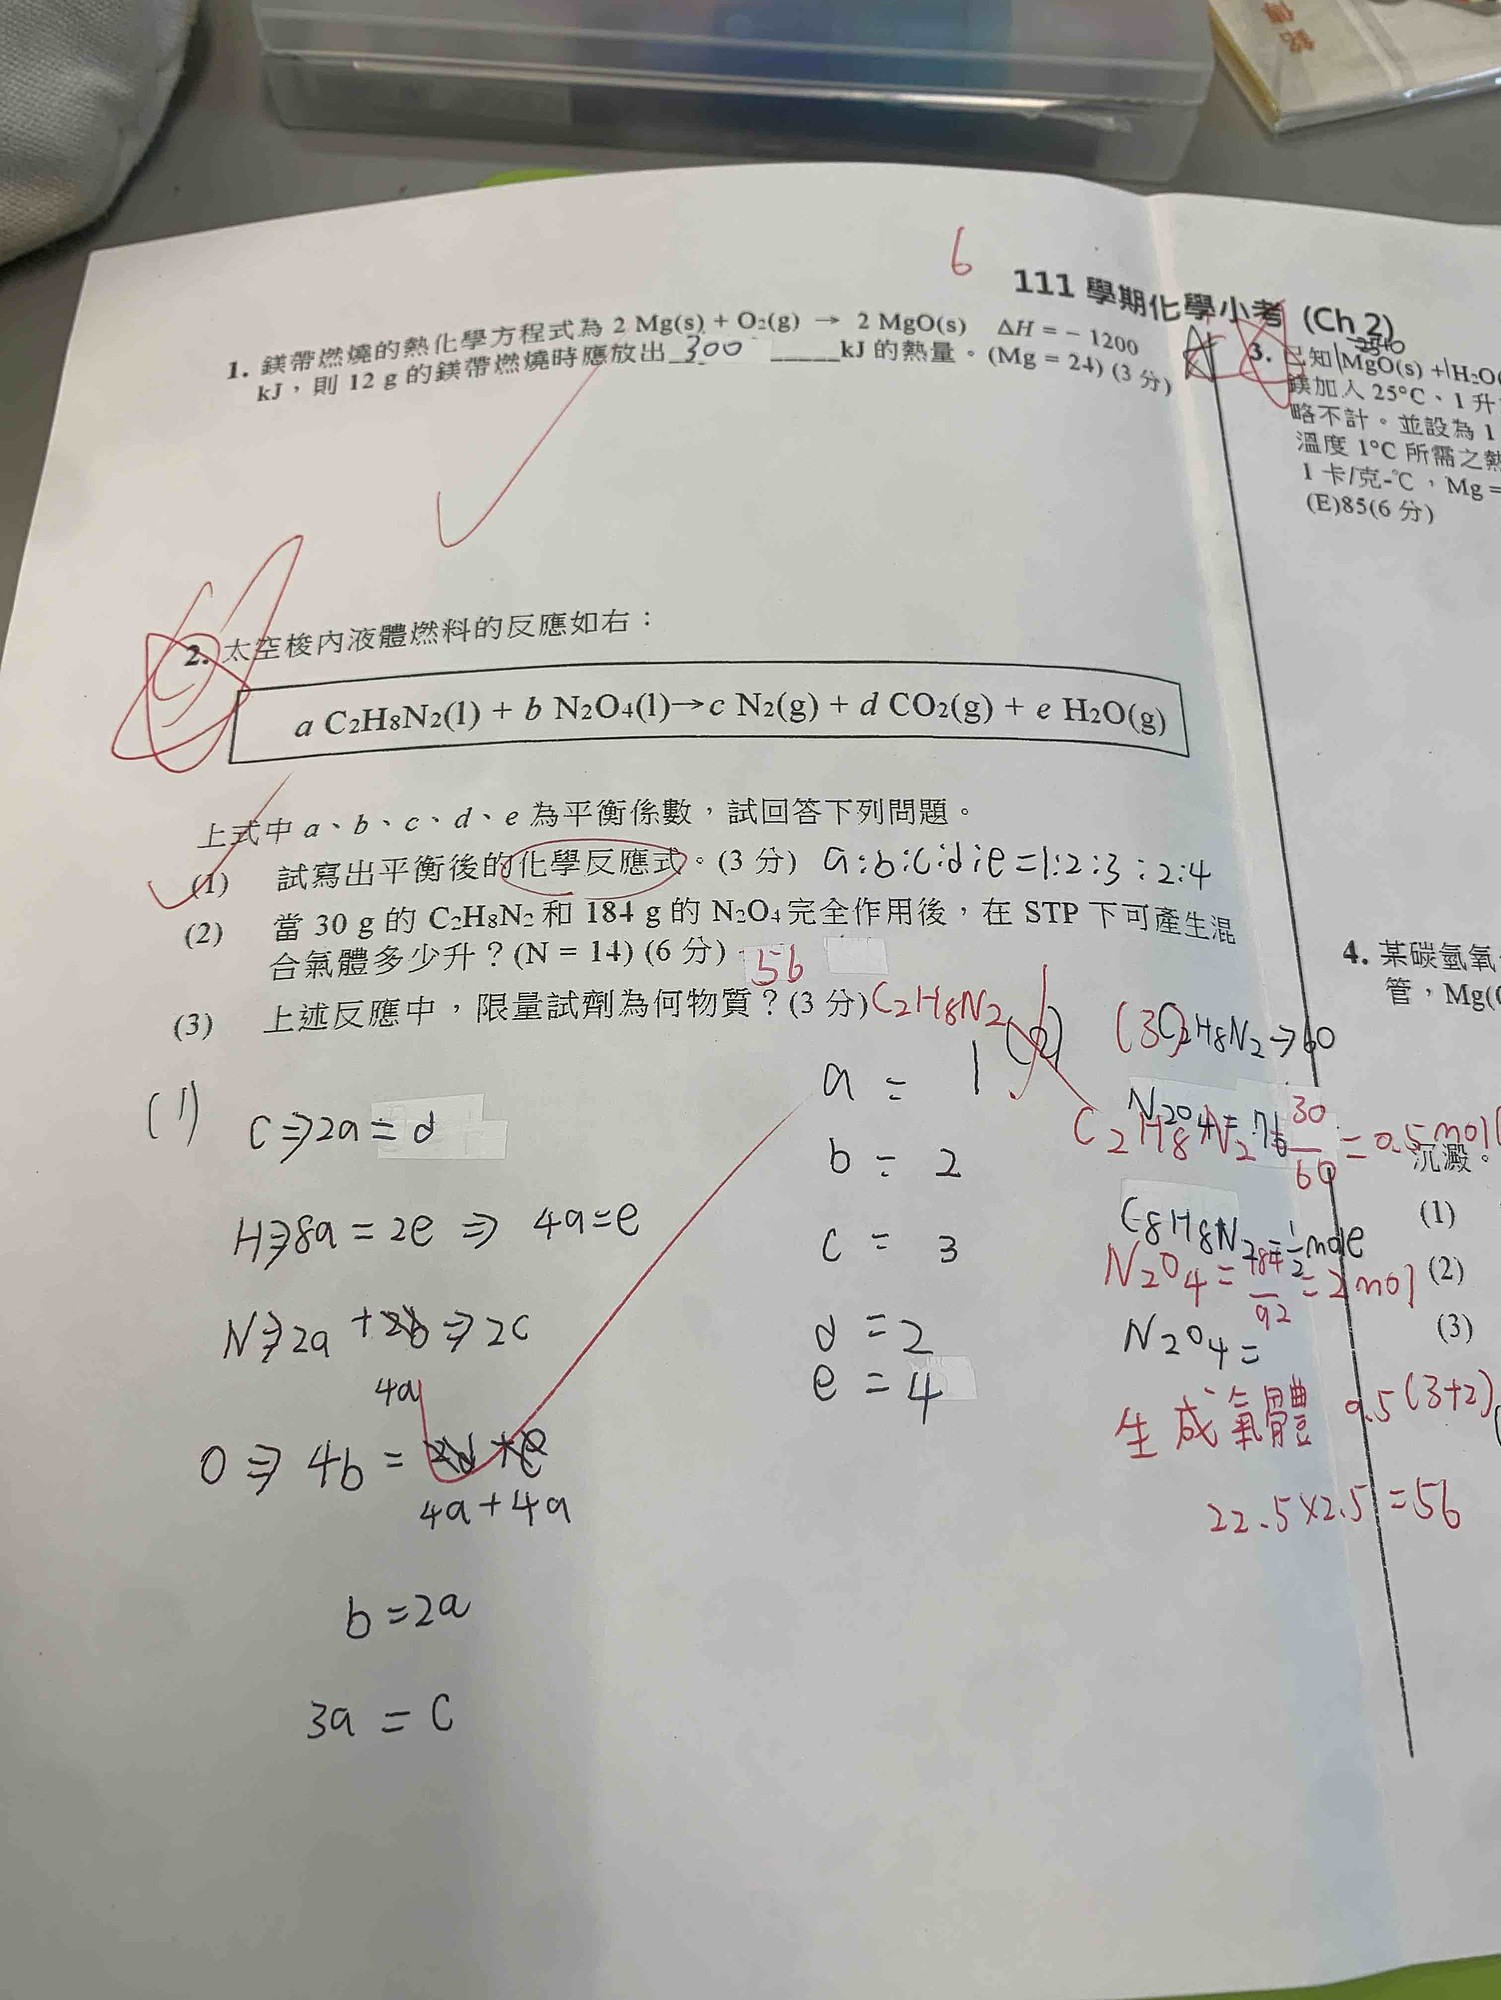 6
111 學期化學小考 (Ch 2)
1. 鎂帶燃燒的熱化學方程式為 2 Mg(s) + O2(g) → 2 MgO(s) ΔH = − 1200
kJ，則 12 g 的鎂帶燃燒時應放出 300 kJ 的熱量。(Mg = 24) (3 分)
2. 太空梭內液體燃料的反應如右：
a C2H8N2(l) + b N2O4(l)→c N2(g) + d CO2(g) + e H2O(g)
上式中 a、b、c、d、e 為平衡係數，試回答下列問題。
(1) 試寫出平衡後的化學反應式。(3 分) a:b:c:d:e=1:2:3:2:4
(2) 當 30 g 的 C2H8N2 和 184 g 的 N2O4 完全作用後，在 STP 下可產生混
合氣體多少升？(N = 14) (6 分) 56
(3) 上述反應中，限量試劑為何物質？(3 分) C2H8N2
(1) C⇒2a=d
H⇒8a=2e ⇒ 4a=e
N⇒2a+2b⇒2c
4a
O⇒4b=2d+e
4a+4a
b=2a
3a=C
a = 1
b = 2
c = 3
d = 2
e = 4
(2)
(3) C2H8N2→60
N2O4=
C2H8N2 30/60 = 0.5mol
C8H8N2=1/2mole
N2O4=184/92=2mol
N2O4=
生成氣體 0.5(3+2)
22.5×2.5=56
3. 已知 MgO(s) + H2O(
鎂加入 25°C、1 升
略不計。並設為 1
溫度 1°C 所需之熱
1 卡/克-°C，Mg =
(E)85(6 分)
4. 某碳氫氧
管，Mg(
沉澱。
(1)
(2)
(3)